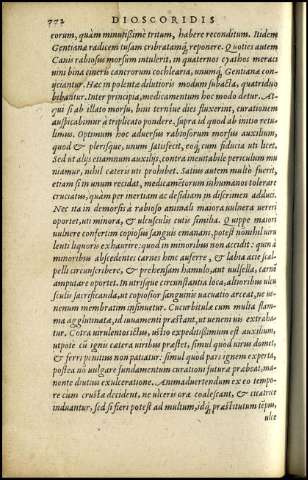 722 DIOSCORIDIS
eorum, quàm minutißimè tritum, habere reconditum. Itidem
Gentianæ radicem tusam cribratamq́; reponere. Quoties autem
Canis rabiosus morsum intulerit, in quaternos cyathos meraci
uini bina cineris cancrorum cochlearia, unumq́; Gentianæ con-
ijciantur. Hæc in polentæ dilutioris modum subacta, quatriduo
bibantur. Inter principia, medicamentum hoc modo detur. At-
qui si ab illato morsu, bini terniue dies fluxerint, curationem
auspicabimur à triplicato pondere, supra id quod ab initio retu-
limus. Optimum hoc aduersus rabiosorum morsus auxilium,
quod & plerisque, unum satisfecit, eoq́; cum fiducia uti licet.
Sed ut alijs etiamnum auxilijs, contra ineuitabile periculum mu
niamur, nihil cateris uti prohibet. Satius autem multò fuerit,
etiam si in unum recidat, medicamētorum inhumanos tolerare
cruciatus, quàm per inertiam ac desidiam in discrimen adduci.
Nec ita in demorsis à rabioso animali maiora uulnera uereri
oportet, uti minora, & ulcusculis cutis similia. Quippe maiori
uulnere confertim copiosus sanguis emanans, potest nonnihil uiru
lenti liquoris exhaurire: quod in minoribus non accidit: quin à
minoribus abscedentes carnes hinc auferre, & labra acie scal-
pelli circunscribere, & prehensam hamulo, aut uulsella, carnē
amputare oportet. In utrisque circunstantia loca, altioribus ulcu
sculis scarificanda, ut copiosior sanguinis uacuatio arceat, ne ue-
nenum membratim insinuetur. Cucurbitulæ cum multa flam-
ma agglutinatæ, id iuuamenti præstant, ut uenenū extraha-
tur. Cætra uirulentos ictus, ustio expeditißimum est auxilium,
utpote cū ignis cætera uiribus præstet, simul quod uirus domet,
& serpi penitius non patiatur: simul quod pars ignem experta,
postea nō uulgare fundamentum curationi futuræ præbeat, ma-
nente diutius exulceratione. Animaduertendum ex eo tempo-
re cum crustæ decident, ne ulceris oræ coalescant, & cicatrix
induantur, sed si fieri potest ad multum, idq́; præstitutum tēpus,
ulce